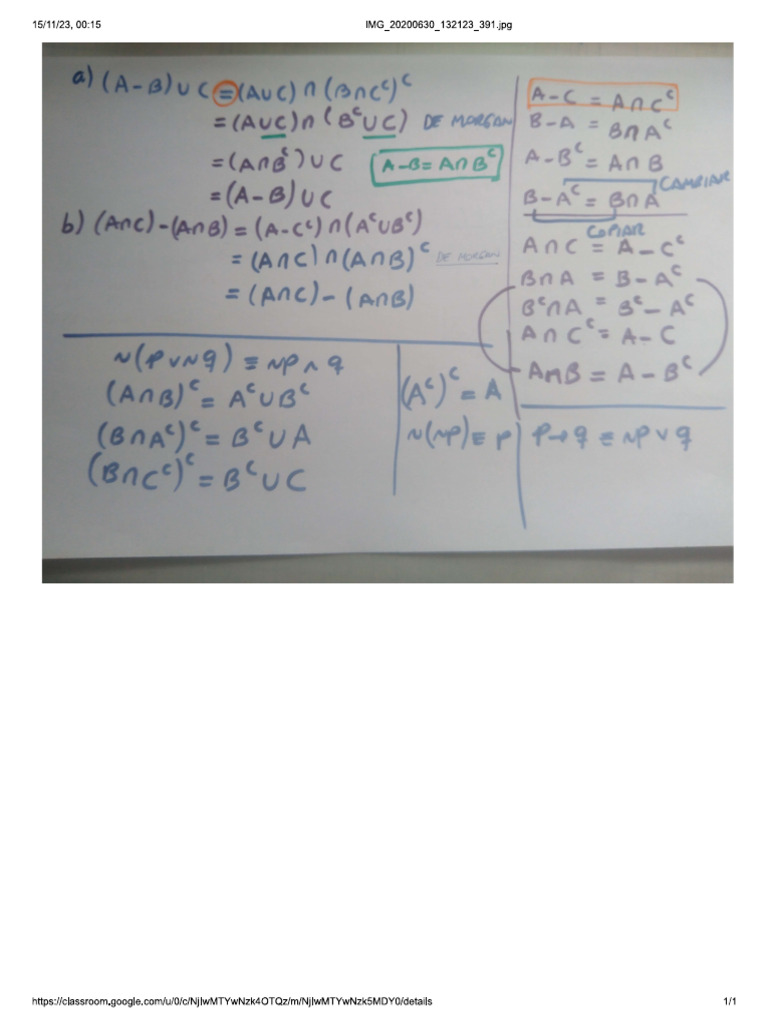 15/11/23, 00:15
IMG_20200630_132123_391.jpg
a) (A-B)∪C = (A∪C)∩(B∩Cᶜ)ᶜ
= (A∪C)∩(Bᶜ∪C) DE MORGAN
= (A∩Bᶜ)∪C
A-B = A∩Bᶜ
= (A-B)∪C
b) (A∩C)-(A∩B) = (A-Cᶜ)∩(Aᶜ∪Bᶜ)
= (A∩C)∩(A∩B)ᶜ DE MORGAN
= (A∩C)-(A∩B)
A-C = A∩Cᶜ
B-A = B∩Aᶜ
A-Bᶜ = A∩B
CAMBIAR
B-Aᶜ = B∩A
COPIAR
A∩C = A-Cᶜ
B∩A = B-Aᶜ
Bᶜ∩A = Bᶜ-Aᶜ
A∩Cᶜ = A-C
A∩B = A-Bᶜ
~(p∨~q) ≡ ~p∧q
(A∩B)ᶜ = Aᶜ∪Bᶜ
(B∩Aᶜ)ᶜ = Bᶜ∪A
(B∩Cᶜ)ᶜ = Bᶜ∪C
(Aᶜ)ᶜ = A
~(~p) ≡ p
p→q ≡ ~p∨q
https://classroom.google.com/u/0/c/NjIwMTYwNzk4OTQz/m/NjIwMTYwNzk5MDY0/details
1/1